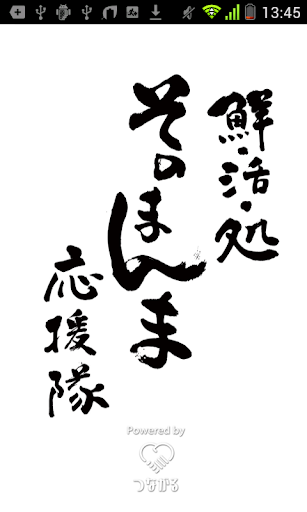 13:45
鮮・活・処
そのまんま
応援隊
Powered by
つながる